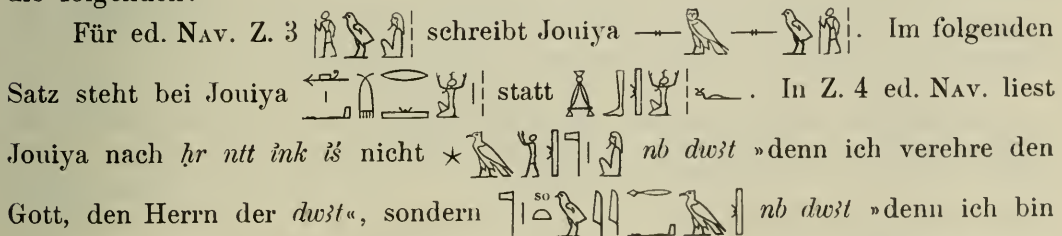 die folgenden:
Für ed. NAV. Z. 3 schreibt Jouiya . Im folgenden
Satz steht bei Jouiya statt . In Z. 4 ed. NAV. liest
Jouiya nach ḥr ntt ỉnk ỉś nicht nb dwꜣt »denn ich verehre den
Gott, den Herrn der dwꜣt«, sondern so nb dwꜣt »denn ich bin